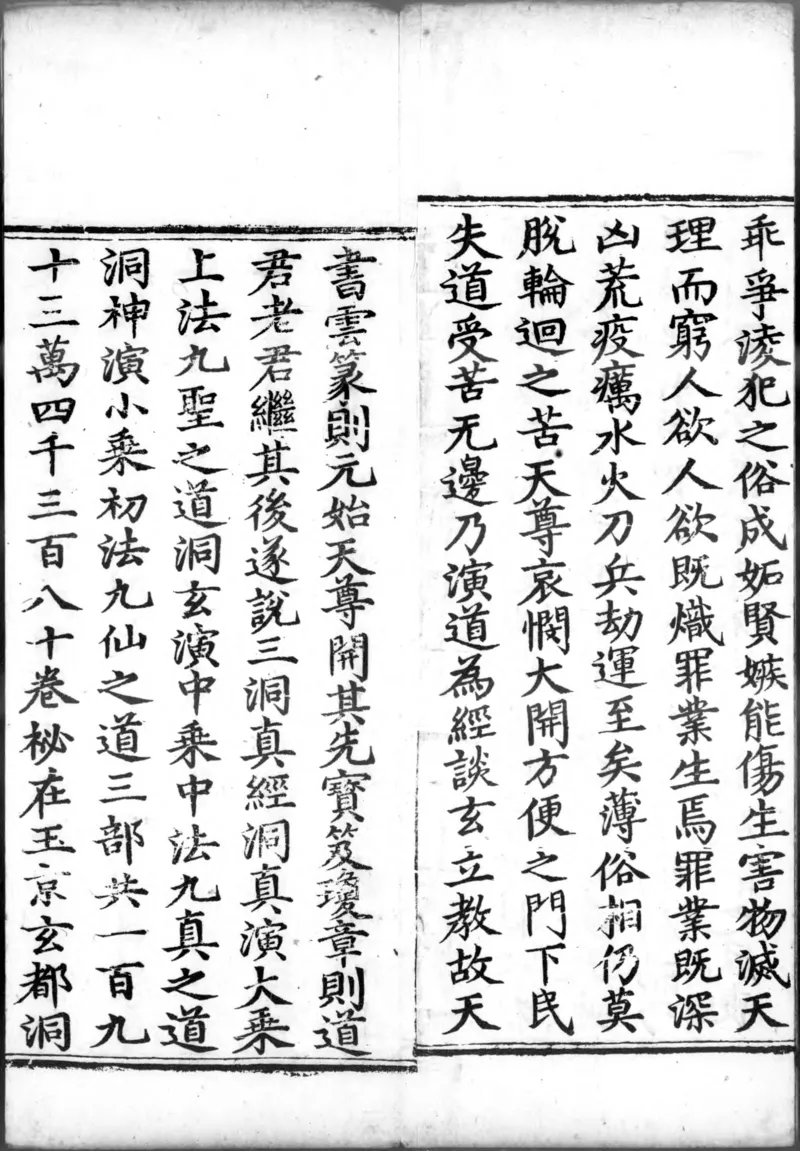 乖爭淩犯之俗成妬賢嫉能傷生害物滅天
理而窮人欲人欲既熾罪業生焉罪業既深
凶荒疫癘水火刀兵劫運至矣薄俗相仍莫
脫輪迴之苦天尊哀憫大開方便之門下民
失道受苦无邊乃演道為經談玄立教故天
書雲篆則元始天尊開其先寶笈瓊章則道
君老君繼其後遂說三洞真經洞真演大乘
上法九聖之道洞玄演中乘中法九真之道
洞神演小乘初法九仙之道三部共一百九
十三萬四千三百八十卷秘在玉京玄都洞